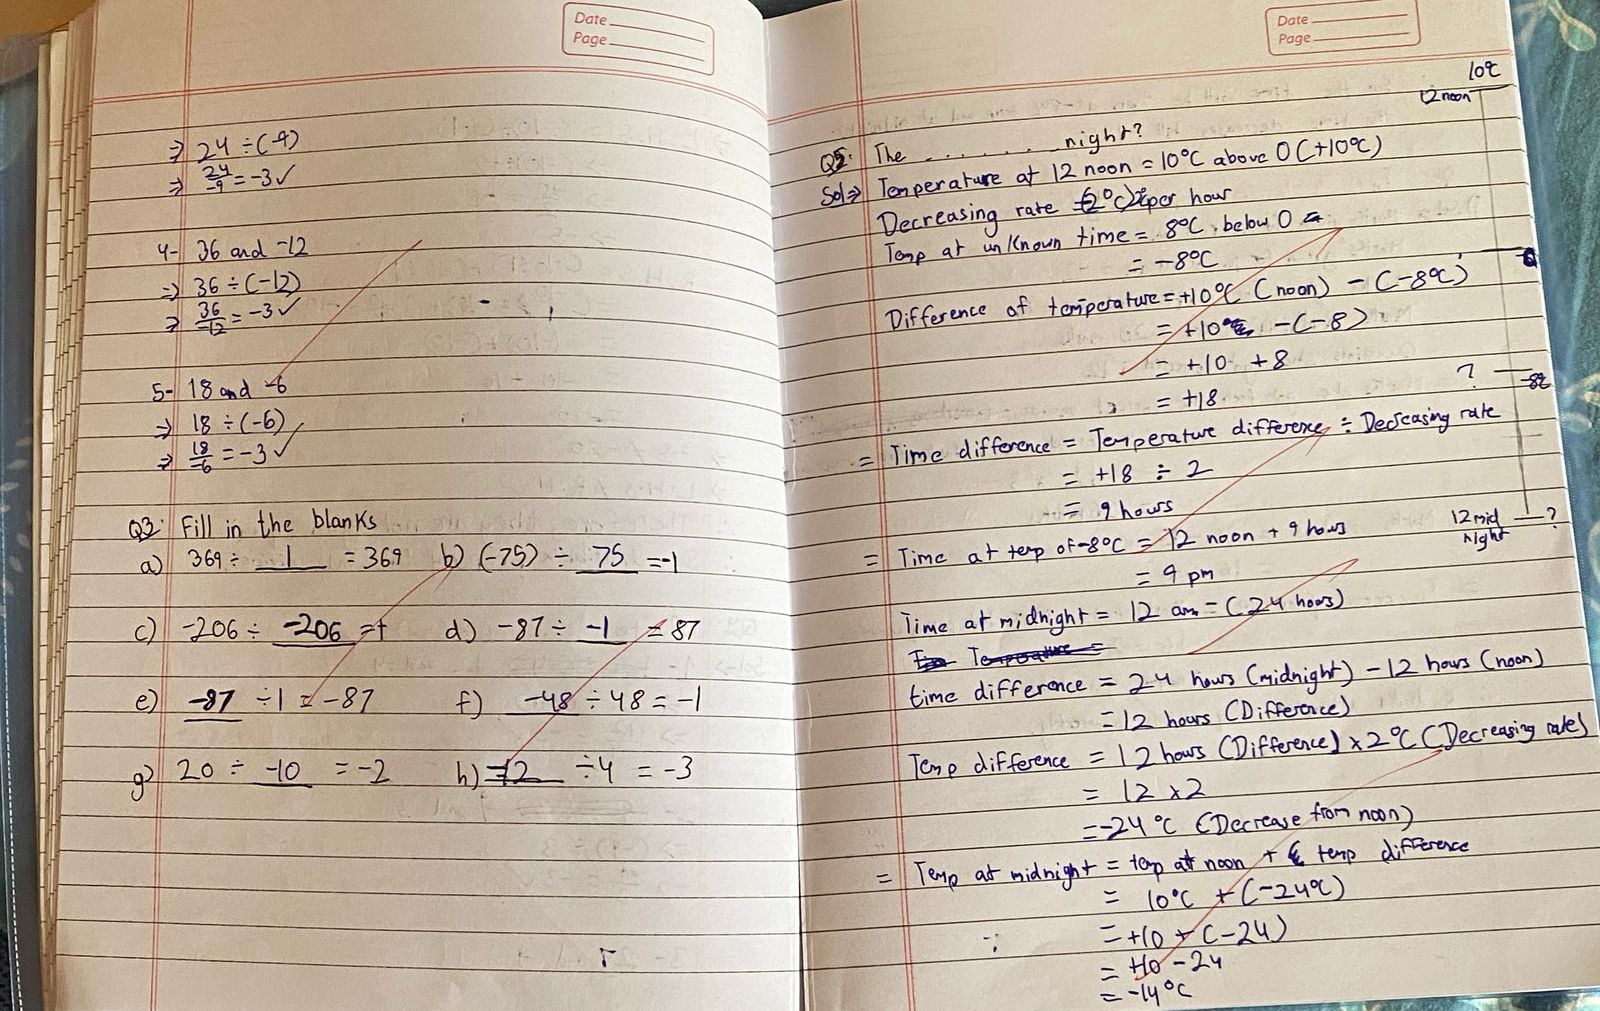 Date
Page
⇒ 24 ÷ (-9)
⇒ 24/-9 = -3 ✓
4- 36 and -12
⇒ 36 ÷ (-12)
⇒ 36/-12 = -3 ✓
5- 18 and -6
⇒ 18 ÷ (-6)
⇒ 18/-6 = -3 ✓
Q3: Fill in the blanks
a) 369 ÷ 1 = 369 b) (-75) ÷ 75 = -1
c) -206 ÷ -206 = 1 d) -87 ÷ -1 = 87
e) -87 ÷ 1 = -87 f) -48 ÷ 48 = -1
g) 20 ÷ -10 = -2 h) -12 ÷ 4 = -3
Date
Page
10℃
12 noon
Q5: The ........ night?
Sol⇒ Temperature at 12 noon = 10°C above 0 (+10°C)
Decreasing rate = 2°C per hour
Temp at unknown time = 8°C below 0
= -8°C
0
Difference of temperature = +10°C (noon) - (-8°C)
= +10 - (-8)
= +10 + 8
? -8℃
= +18
= Time difference = Temperature difference ÷ Decreasing rate
= +18 ÷ 2
= 9 hours
12 mid night ?
= Time at temp of -8°C = 12 noon + 9 hours
= 9 pm
Time at midnight = 12 am = (24 hours)
Temperature =
time difference = 24 hours (midnight) - 12 hours (noon)
= 12 hours (Difference)
Temp difference = 12 hours (Difference) × 2°C (Decreasing rate)
= 12 × 2
= -24°C (Decrease from noon)
= Temp at midnight = temp at noon + temp difference
= 10°C + (-24°C)
= +10 + (-24)
= +10 - 24
= -14°C